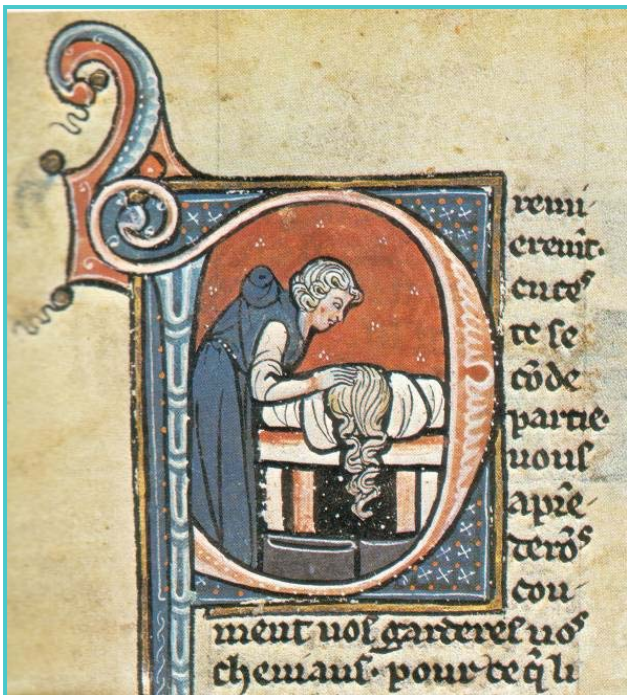 Premi-
erem̄t·
en ces
te se
cōde
partie·
uous
aprē-
terōs
con-
ment uos garderes uos
cheuiaus· pour ce q̄ li